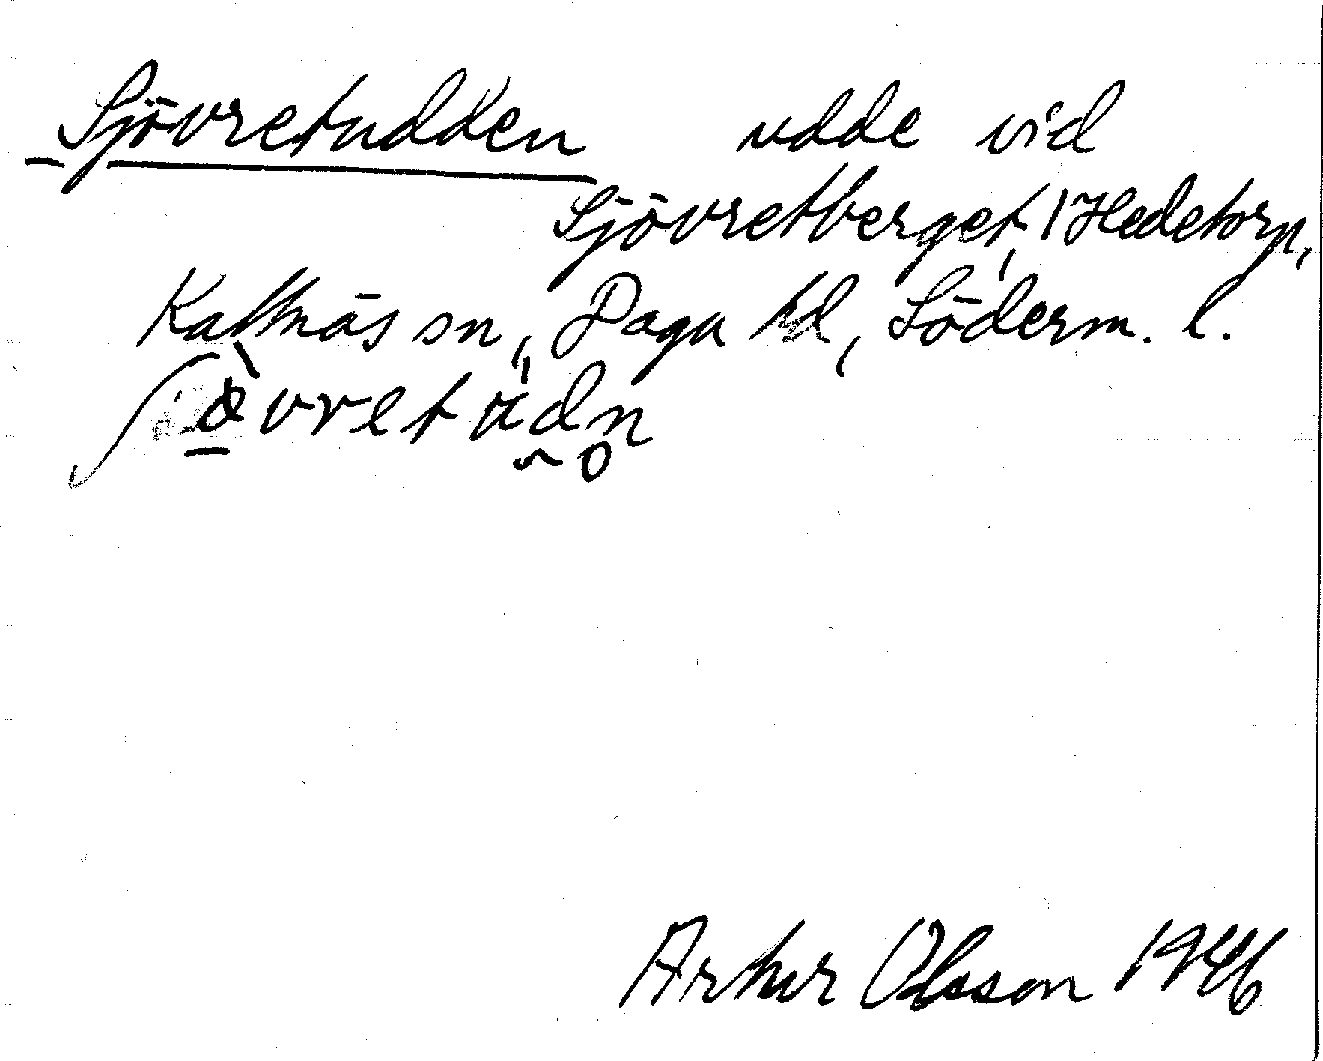 Sjövretudden udde vid
Sjövretberget, Hedetorp,
Kattnäs sn, Daga hd, Söderm. l.
Arthur Olsson 1946